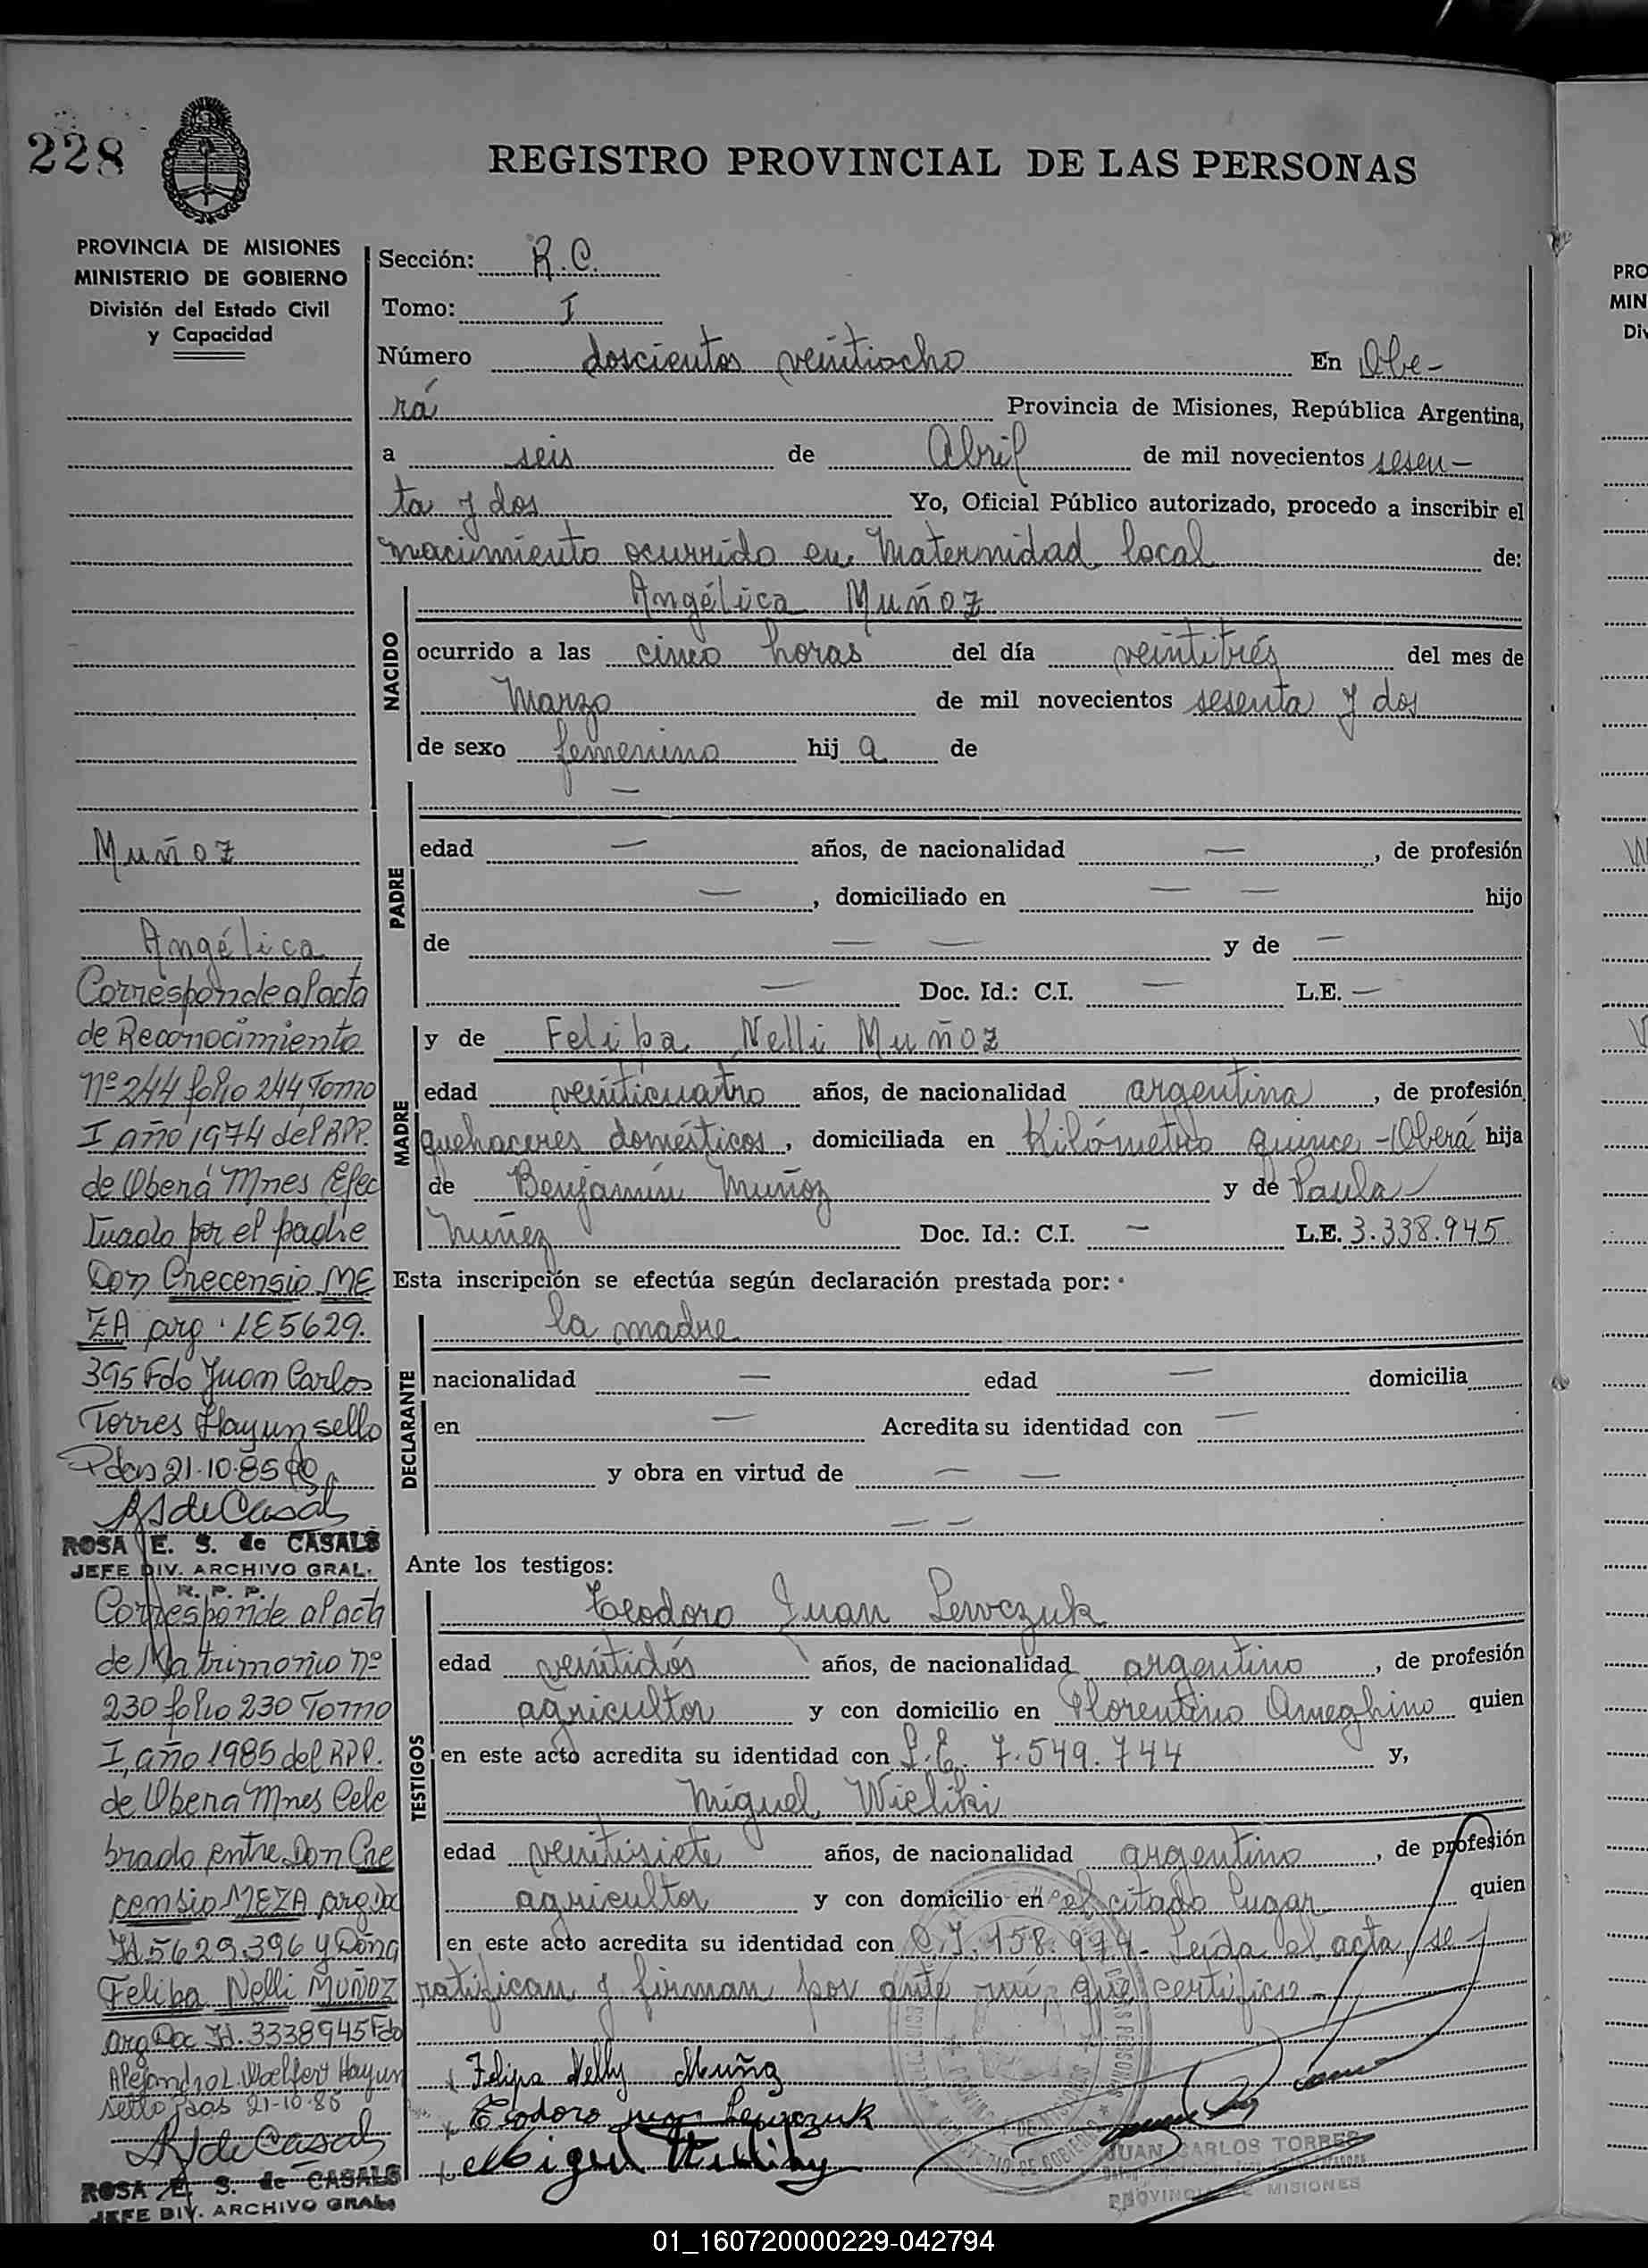 228
REGISTRO PROVINCIAL DE LAS PERSONAS
PROVINCIA DE MISIONES
MINISTERIO DE GOBIERNO
División del Estado Civil
y Capacidad
Sección: R.C.
Tomo: I
Número doscientos veintiocho En Obe-
rá Provincia de Misiones, República Argentina,
a seis de Abril de mil novecientos sesen-
ta y dos Yo, Oficial Público autorizado, procedo a inscribir el
nacimiento ocurrido en Maternidad local de:
NACIDO
Angélica Muñoz
ocurrido a las cinco horas del día veintitrés del mes de
Marzo de mil novecientos sesenta y dos
de sexo femenino hija de
PADRE
—
edad — años, de nacionalidad —, de profesión
—, domiciliado en — — hijo
de — — y de —
— Doc. Id.: C.I. — L.E. —
MADRE
y de Felipa Nelli Muñoz
edad veinticuatro años, de nacionalidad argentina, de profesión
quehaceres domésticos, domiciliada en Kilómetro quince - Oberá hija
de Benjamín Muñoz y de Paula
Nuñez Doc. Id.: C.I. — L.E. 3.338.945
Esta inscripción se efectúa según declaración prestada por:
DECLARANTE
la madre
nacionalidad — edad — domicilia
en — Acredita su identidad con —
y obra en virtud de — —
— —
Ante los testigos:
TESTIGOS
Teodoro Juan Lewczuk
edad veintidós años, de nacionalidad argentino, de profesión
agricultor y con domicilio en Florentino Ameghino quien
en este acto acredita su identidad con L.E. 7.549.744 y,
Miguel Wieliki
edad veintisiete años, de nacionalidad argentino, de profesión
agricultor y con domicilio en el citado lugar quien
en este acto acredita su identidad con C.I. 158.974- Leída el acta, se
ratifican y firman por ante mí, que certifico -
x Felipa Nelly Muñoz
x Teodoro Juan Lewczuk
x Miguel
JUAN CARLOS TORRES
PROVINCIA DE MISIONES
Muñoz
Angélica
Corresponde al acta
de Reconocimiento
Nº 244 folio 244, Tomo
I año 1974 del RPP.
de Oberá Mnes Efec
tuado por el padre
Don Crecensio ME
ZA arg. LE 5629.
395 Fdo Juan Carlos
Torres Hay un sello
Pdas 21-10-85
ROSA E. S. de CASALS
JEFE DIV. ARCHIVO GRAL.
R. P. P.
Corresponde al acta
de Matrimonio nº
230 folio 230 Tomo
I, año 1985 del RPP.
de Oberá Mnes Cele
brado entre Don Cre
censio MEZA arg Doc
Id 5629.396 y Doña
Felipa Nelli MUÑOZ
arg Doc Id. 3338945 Fdo
Alejandro L. Hay un
sello Pdas 21-10-85
ROSA E. S. de CASALS
JEFE DIV. ARCHIVO GRAL.
PRO
MIN
Div
01_160720000229-042794